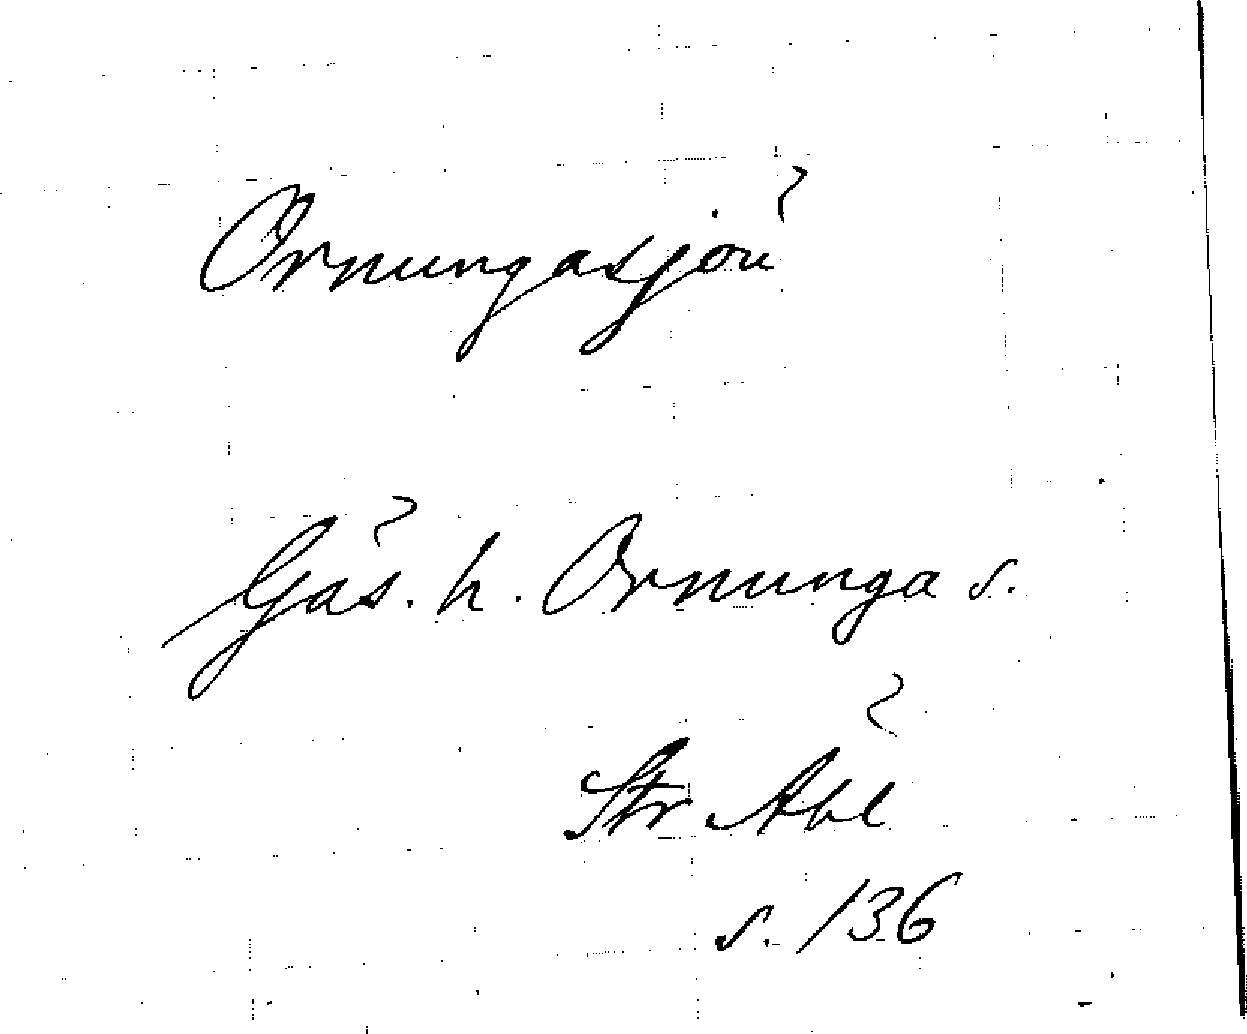 Ornungasjön
Gäs. h. Ornunga s.
Str Abl
s. 136